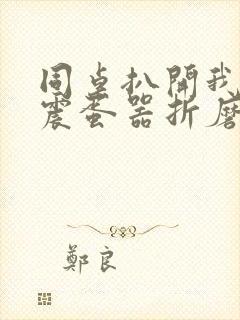 同桌扒開我
震蛋器折磨
鄭良